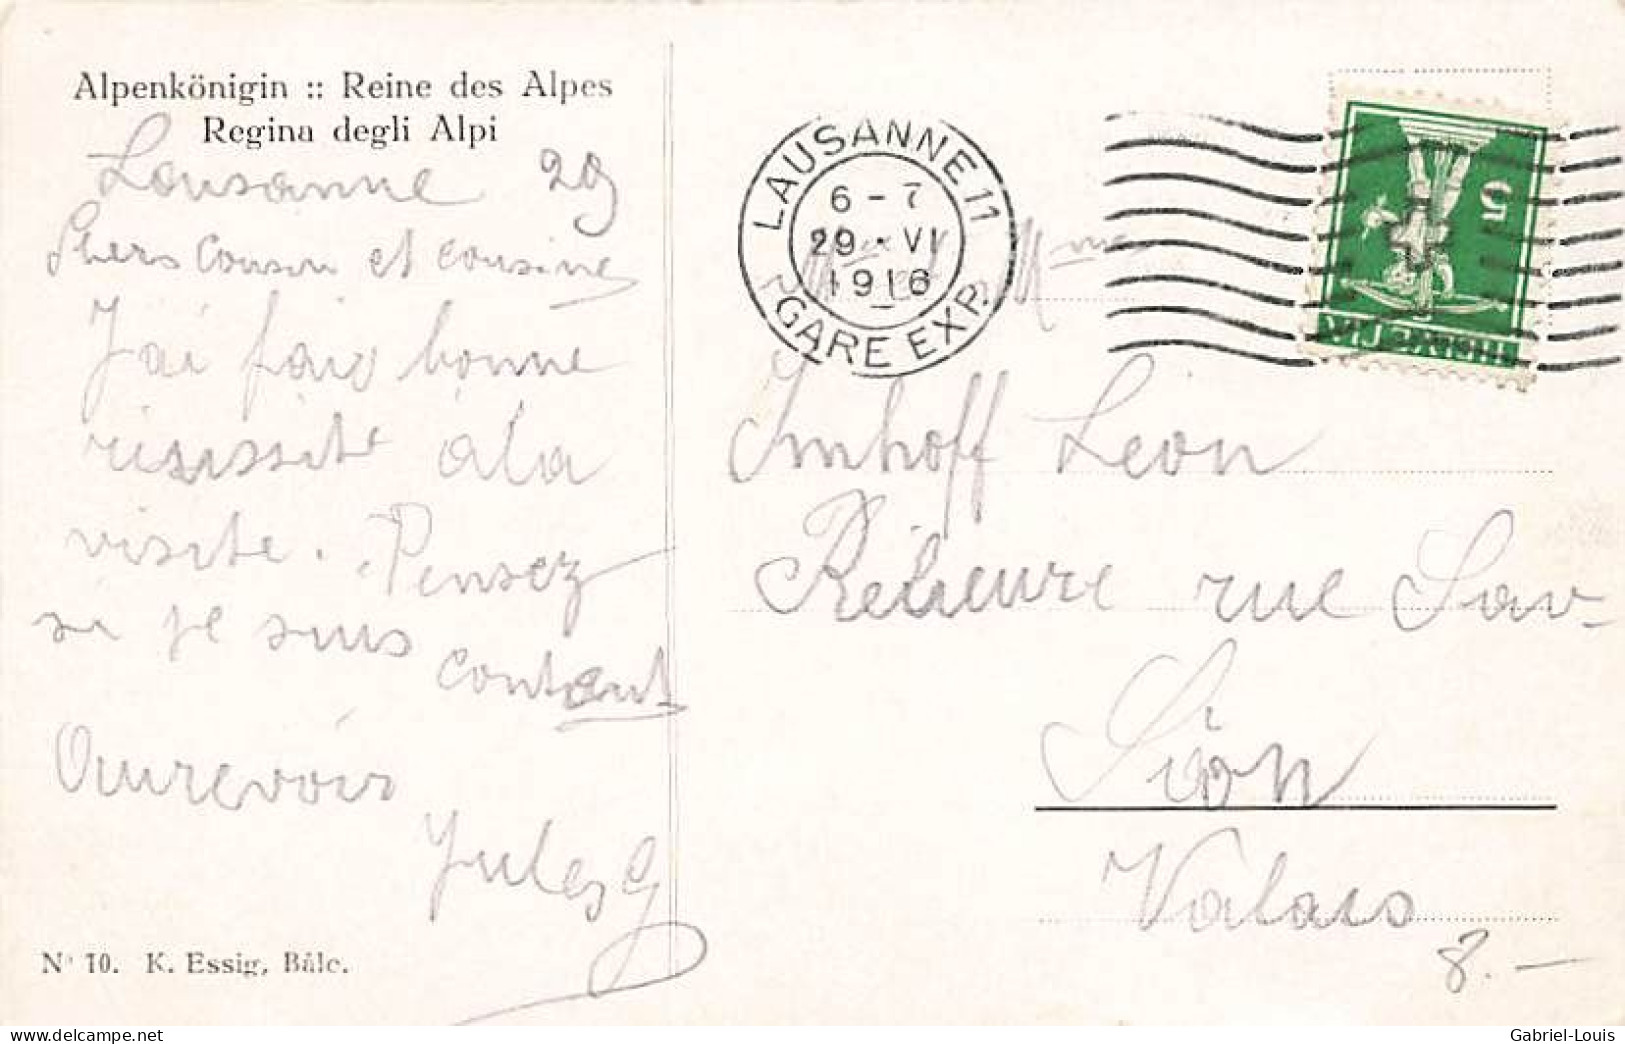 Alpenkönigin :: Reine des Alpes
Regina degli Alpi
Lausanne 29
Chers Cousin et cousine
J'ai fais bonne
risissite à la
visite. Pensez
si je suis
contant
Aurevoir
Jules G
N° 10. K. Essig, Bâle.
LAUSANNE 11
6-7
29·VI
1916
GARE EXP.
5
HELVETIA
Mr et Mme
Imhoff Leon
Relieure rue Sav-
Sion
Valais
8.-
Gabriel-Louis
www.delcampe.net